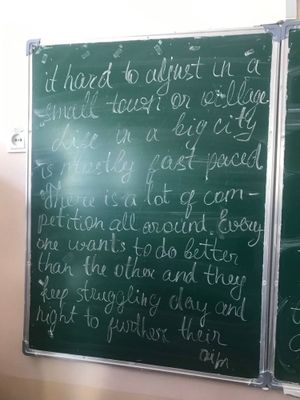 it hard to adjust in a
small town or village
life in a big city
is mostly fast paced
There is a lot of com-
petition all around. Every
one wants to do better
than the other and they
keep struggling day and
night to further their
aim.